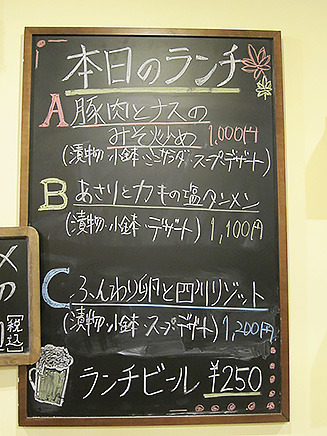 本日のランチ
A 豚肉とナスの
みそ炒め 1,000円
(漬物・小鉢・ミニサラダ・スープ・デザート)
B あさりとカキの塩タンメン
(漬物・小鉢・デザート) 1,100円
C ふんわり卵と四川リゾット
(漬物・小鉢・スープ・デザート) 1,200円
ランチビール ¥250
税込